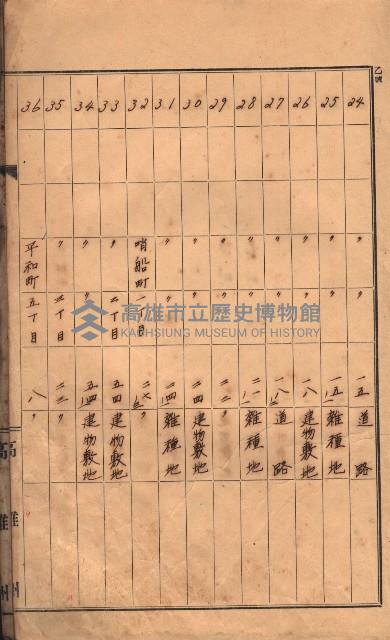 乙號
24 〃 〃 一五 道路
25 〃 〃 一五ノ一 雜種地
26 〃 〃 一八 建物敷地
27 〃 〃 道路
28 〃 〃 雜種地
29 〃 〃 二二 〃
30 〃 〃 二四 建物敷地
31 〃 〃 二四ノ一 雜種地
32 哨船町 一丁目 〃
33 〃 二丁目 五四 建物敷地
34 〃 〃 五四ノ一 建物敷地
35 〃 三丁目 二二 〃
36 平和町 五丁目 八 〃
高雄州
高雄市立歷史博物館
KAOHSIUNG MUSEUM OF HISTORY